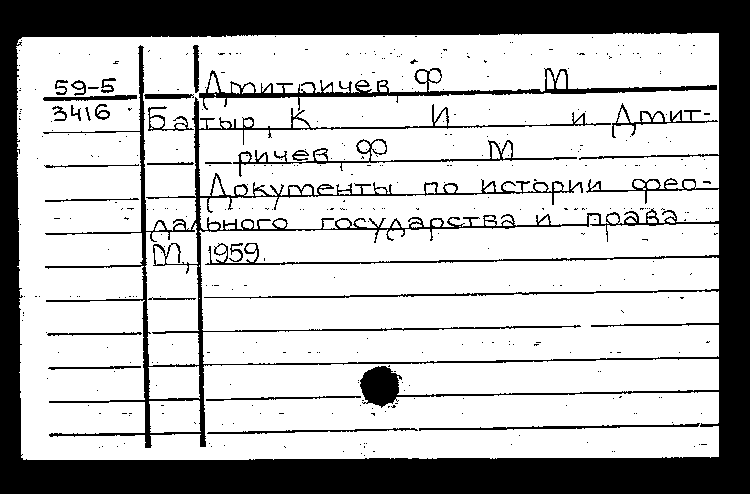 59-5 Дмитричев, Ф М
3416 Батыр, К И и Дмит-
ричев, Ф М
Документы по истории фео-
дального государства и права.
М, 1959.